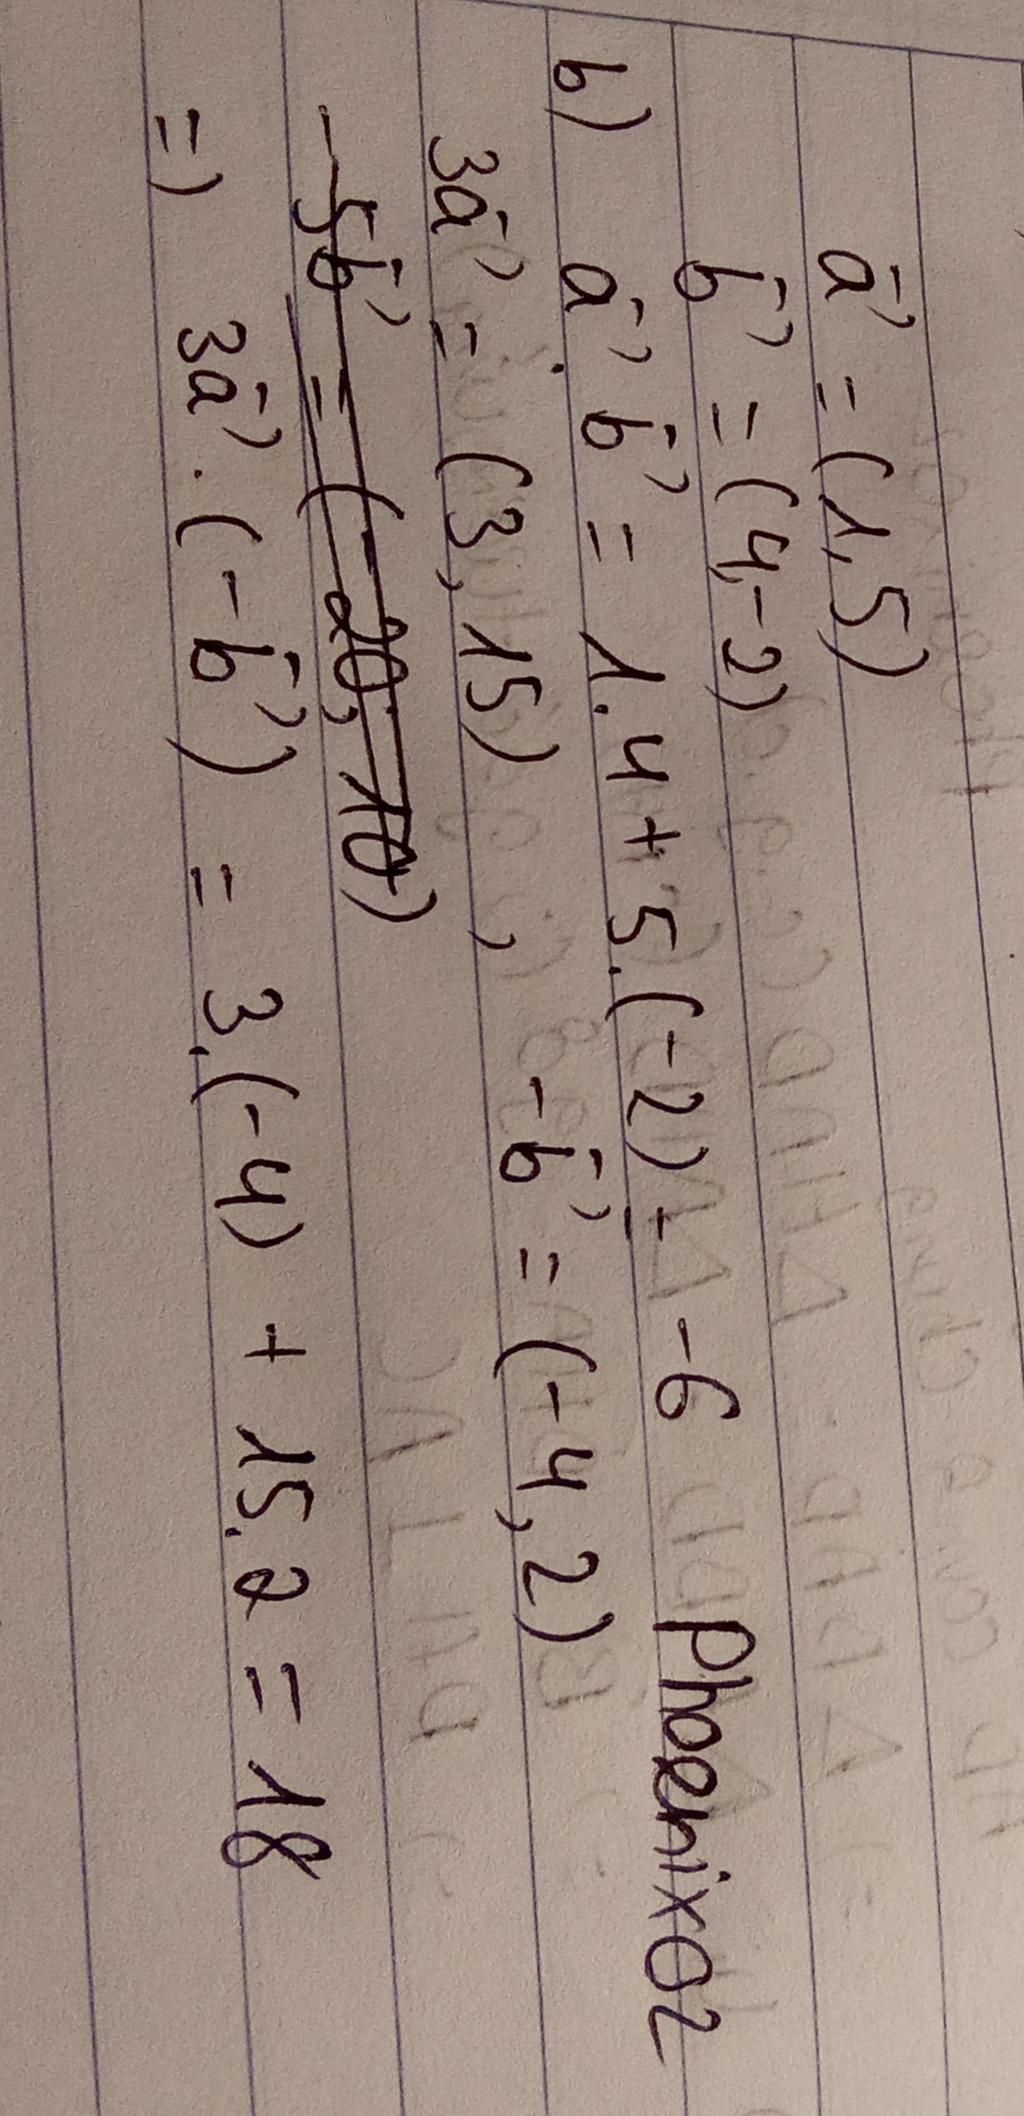 a⃗ = (1, 5)
b⃗ = (4, -2)
b) a⃗ . b⃗ = 1.4 + 5.(-2) = -6 Phoenix02
3a⃗ = (3, 15) , -b⃗ = (-4, 2)
-5b⃗ = (-20, 10)
=) 3a⃗ . (-b⃗) = 3.(-4) + 15.2 = 18